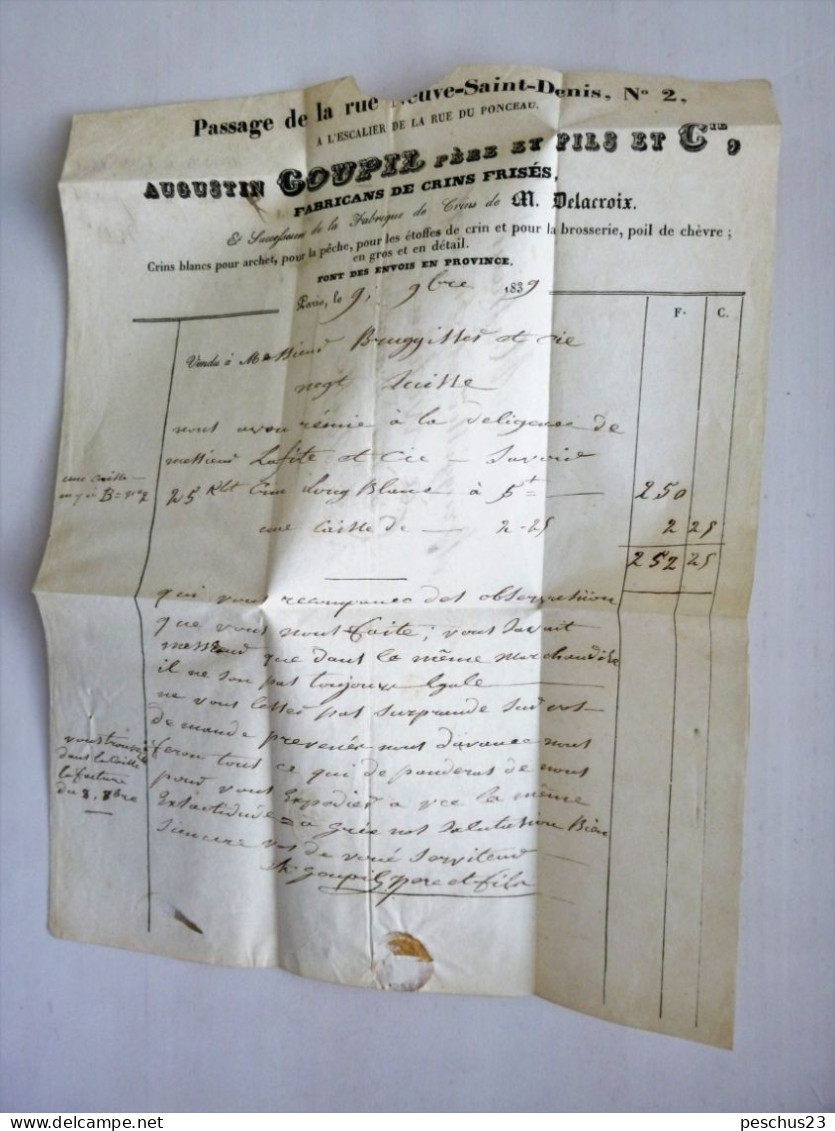 Passage de la rue Neuve-Saint-Denis, N° 2,
A L'ESCALIER DE LA RUE DU PONCEAU.
AUGUSTIN GOUPIL PÈRE ET FILS ET Cie,
FABRICANS DE CRINS FRISÉS,
Et Successeurs de la Fabrique de Crins de M. Delacroix.
Crins blancs pour archet, pour la pêche, pour les étoffes de crin et pour la brosserie, poil de chèvre ;
en gros et en détail.
FONT DES ENVOIS EN PROVINCE.
Paris, le 9 9bre 1839
F. C.
Vendu à Messieurs Bruggisser et cie
negt Suisse
nous avon rémie à la deligence de
messieur Lafite et Cie – Savoir
une caisse
25 Klt Crin Long Blanc à 5t — 250
une Caisse de — 2-25 2 25
252 25
qui vous recompance des observesiion
que vous nous faite; vous savait
messieur que dans la même marchandise
il ne son pas toujour Egale
ne vous lesser pas surprande sur vos
de mande prevenés nous d'avance nous
feron tout ce qui de panderas de nous
pour vous Expedier a vce la même
Exsactidude = à grée nos salutasion Bien
sincere vos de voué serviteur
A Goupil pere et fils
vous trouverés
dans la caisse
la facture
du 8. 8bre
peschus23